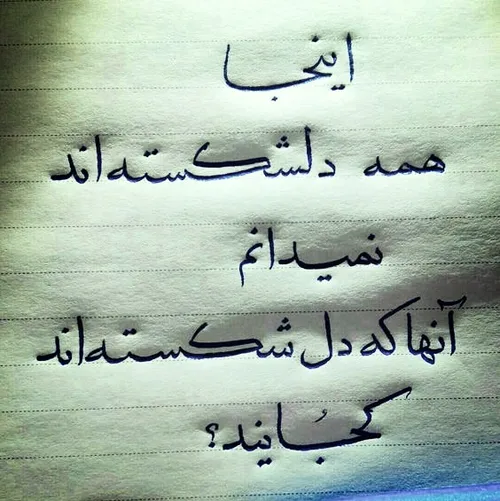 اینجا
همه دلشکسته‌اند
نمیدانم
آنها که دل شکسته‌اند
کجُایند؟